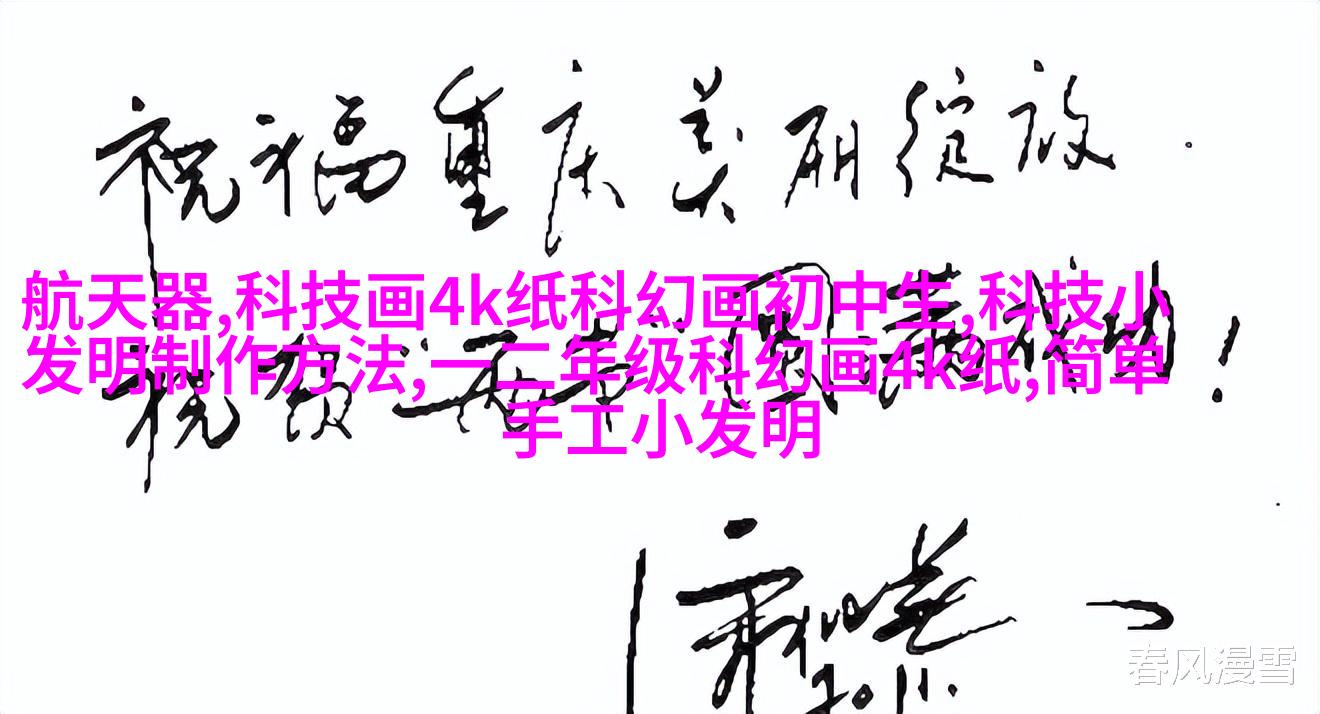 祝福重庆美丽绽放.
航天器,科技画4k纸科幻画初中生,科技小
发明制作方法,一二年级科幻画4k纸,简单
手工小发明
祝贺
!
2011.
春风漫雪